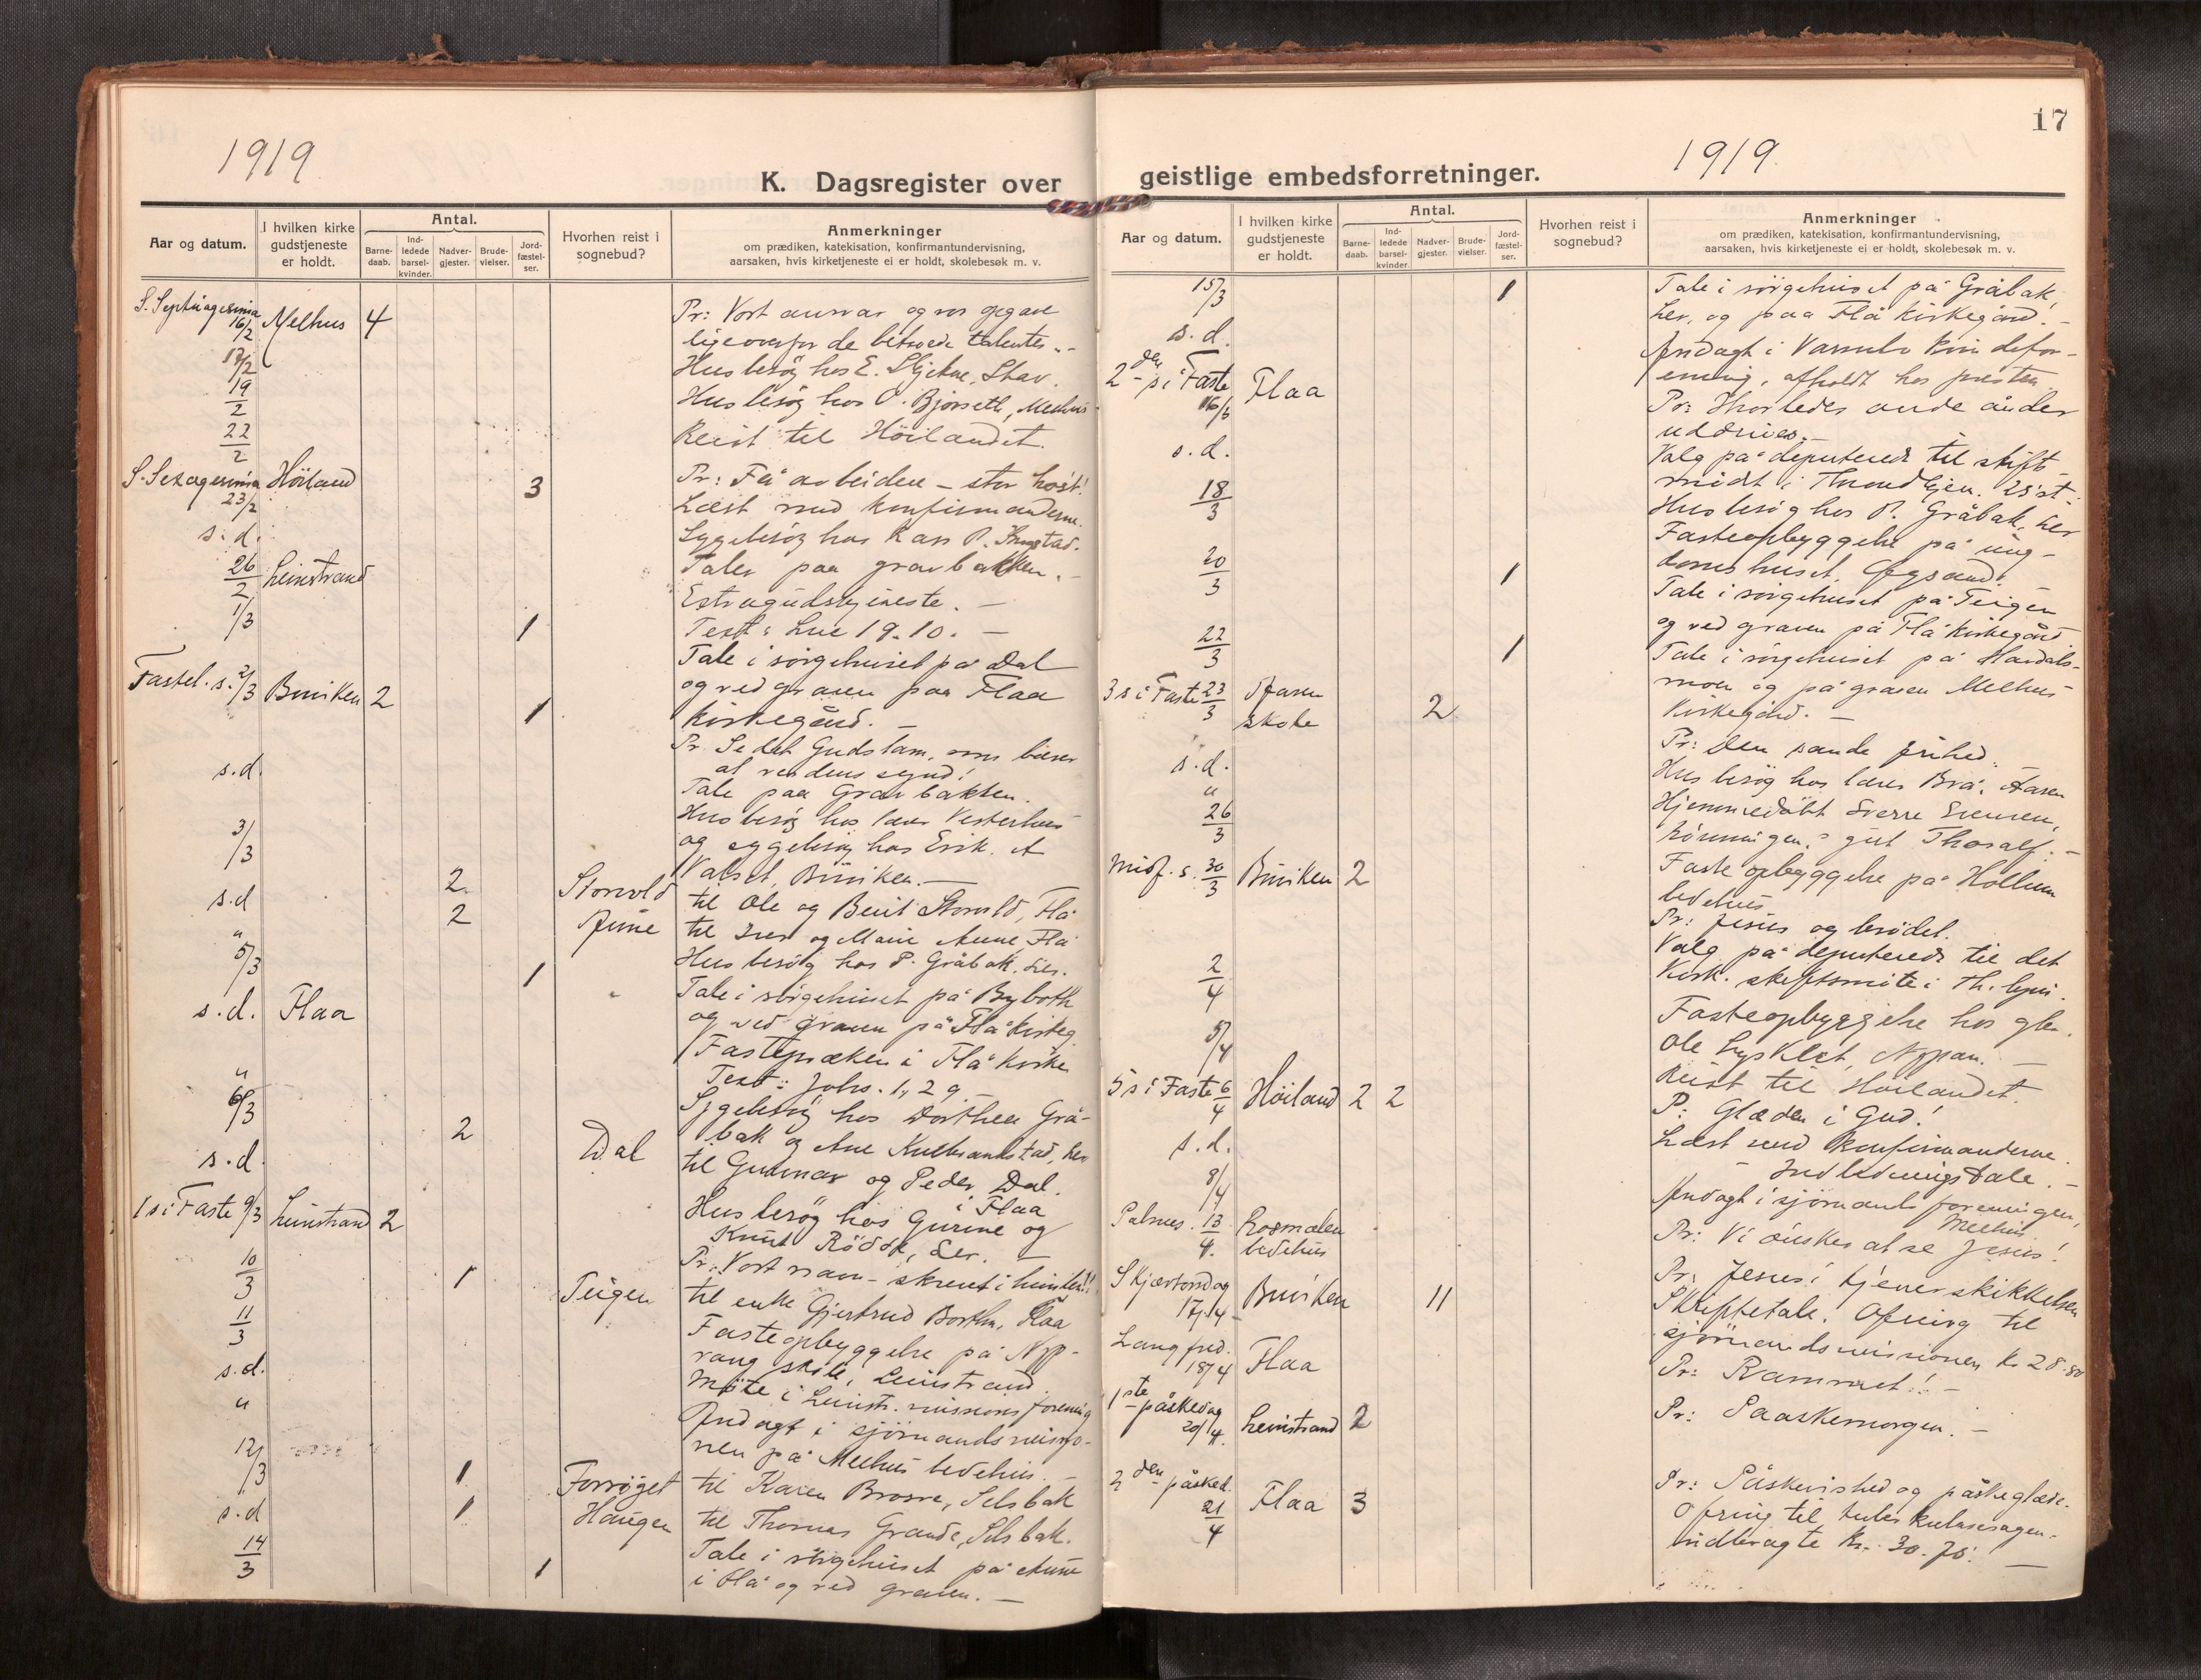 1919
K. Dagsregister over
Aar og datum.
I hvilken kirke
gudstjeneste
er holdt.
Antal.
Barne-
daab.
Ind-
ledede
barsel-
kvinder.
Nadver-
gjester.
Brude-
vielser.
Jord-
fæstel-
ser.
Hvorhen reist i
sognebud?
Anmerkninger
om prædiken, katekisation, konfirmantundervisning,
aarsaken, hvis kirketjeneste ei er holdt, skolebesøk m. v.
S. Septuagesima 16/2 Melhus 4 Pr: Vort ansvar og vor opgave
ligeoverfor de betroede talenter.-
17/2 Husbesøg hos E. Skjetne, Stav.
19/2 Husbesøg hos O. Bjørseth, Melhus
22/2 Reist til Höilandet.
S. Sexagesima 23/2 Höiland 3 Pr: Få arbeidere - stor høst!
Læst med konfirmanderne.
s. d. Sygebesøg hos Lars P.
Taler paa gravbakken. -
26/2 Leinstrand Extragudstjeneste. -
Text: Luc 19. 10. -
1/3 1 Tale i sörgehuset på Dal
og ved graven paa Flaa
kirkegård. -
Fastel. s. 2/3 Buviken 2 1 Pr. Se det Guds lam, som bærer
al verdens synd!
Tale paa Gravbakken.
s. d. Husbesög hos lærer Vesterhus
og sygebesög hos Erik. A
Valset, Buviken. -
3/3 2 Storvold til Ole og Berit Storvold, Flå
s. d 2 Aune til Iver og Marie Aune Flå
" Husbesög hos P. Gråbak, Ler.
5/3 1 Tale i sörgehuset på Byboth
og ved graven på Flå kirkeg.
s. d. Flaa Fastepræken i Flå kirke
Text: Johs. 1, 29. -
" Sygebesög hos Dorthea Grå-
bak og Ane Kulbrandstad, Ler
6/3 2 Dal til Gunnar og Peder Dal.
i Flaa
s. d. Husbesög hos Gurine og
Knut Rödde, Ler. -
1 s i Faste 9/3 Leinstrand 2 Pr: Vort navn - skrevet i himlen!!
10/3 1 Teigen til enke Gjertrud Borthn, Flaa
11/3 Fasteopbyggelse på Nyp-
vang skole, Leinstrand.
s. d. Møte i Leinstr. missionsforening
" Andagt i sjömandsmissjo-
nen på Melhus bedehus. -
12/3 1 Forsöget til Karen Brosve, Selsbak
s. d 1 Haugen til Thomas Grande, Selsbak.
14/3 1 Tale i sörgehuset på Aune
i Flå og ved graven. -
17
1919
geistlige embedsforretninger.
Aar og datum.
I hvilken kirke
gudstjeneste
er holdt.
Antal.
Barne-
daab.
Ind-
ledede
barsel-
kvinder.
Nadver-
gjester.
Brude-
vielser.
Jord-
fæstel-
ser.
Hvorhen reist i
sognebud?
Anmerkninger
om prædiken, katekisation, konfirmantundervisning,
aarsaken, hvis kirketjeneste ei er holdt, skolebesøk m. v.
15/3 1 Tale i sörgehuset på Gråbak,
Ler, og paa Flå kirkegård. -
s. d. Andagt i Varmbo kvindefor-
ening, afholdt hos presten.
2den s i Faste 16/3 Flaa Pr: Hvorledes onde ånder
uddrives. -
s. d. Valg på deputerede til skifts-
mödt i Trondhjem. 25 st.
18/3 Husbesög hos P. Gråbak, Ler
Fasteopbyggelse på ung-
domshuset, Öysand.
20/3 1 Tale i sörgehuset på Teigen
og ved graven på Flå kirkegård
22/3 1 Tale i sörgehuset på Havdals-
moen og på graven Melhus
kirkegård. -
3 s i Faste 23/3 Åsen
skole 2 Pr: Den sande frihed.
s. d. Husbesög hos lærer Brå, Aasen
" Hjemmedöbt Sverre Svensen,
Rönningen,s gut Thoralf. -
26/3 Faste opbyggelse på Hollum
bedehus
Midf. s. 30/3 Buviken 2 Pr: Jesus og brödet.
Valg på deputerede til det
kirk. skiftsmöte i Th.hjem.
2/4 Fasteopbyggelse hos gbr.
Ole Lysklet, Nypan. -
5/4 Reist til Höilandet.
5 s i Faste 6/4 Höiland 2 2 P: Glæden i Gud!
Læst med konfirmanderne.
s. d. - Indledningstale. -
8/4 Andagt i sjömandsforeningen,
Melhus
Palmes. 13/4. Rosmælen
bedehus Pr: Vi önsker at se Jesus!
Skjærtorsdag 17/4 - Buviken 11 Pr: Jesus i tjenerskikkelsen
Skriftetale. Ofring til
sjömandsmissionen Kr 28.80
Langfred. 18/4 Flaa Pr: Rammet! -
1ste påskedag 20/4. Leinstrand 2 Pr: Paaskemorgen. -
2den påsked. 21/4 Flaa 3 Pr: Påskevished og påskeglæde.
Ofring til tuberkulosesagen.
indbragte Kr. 30.75. -